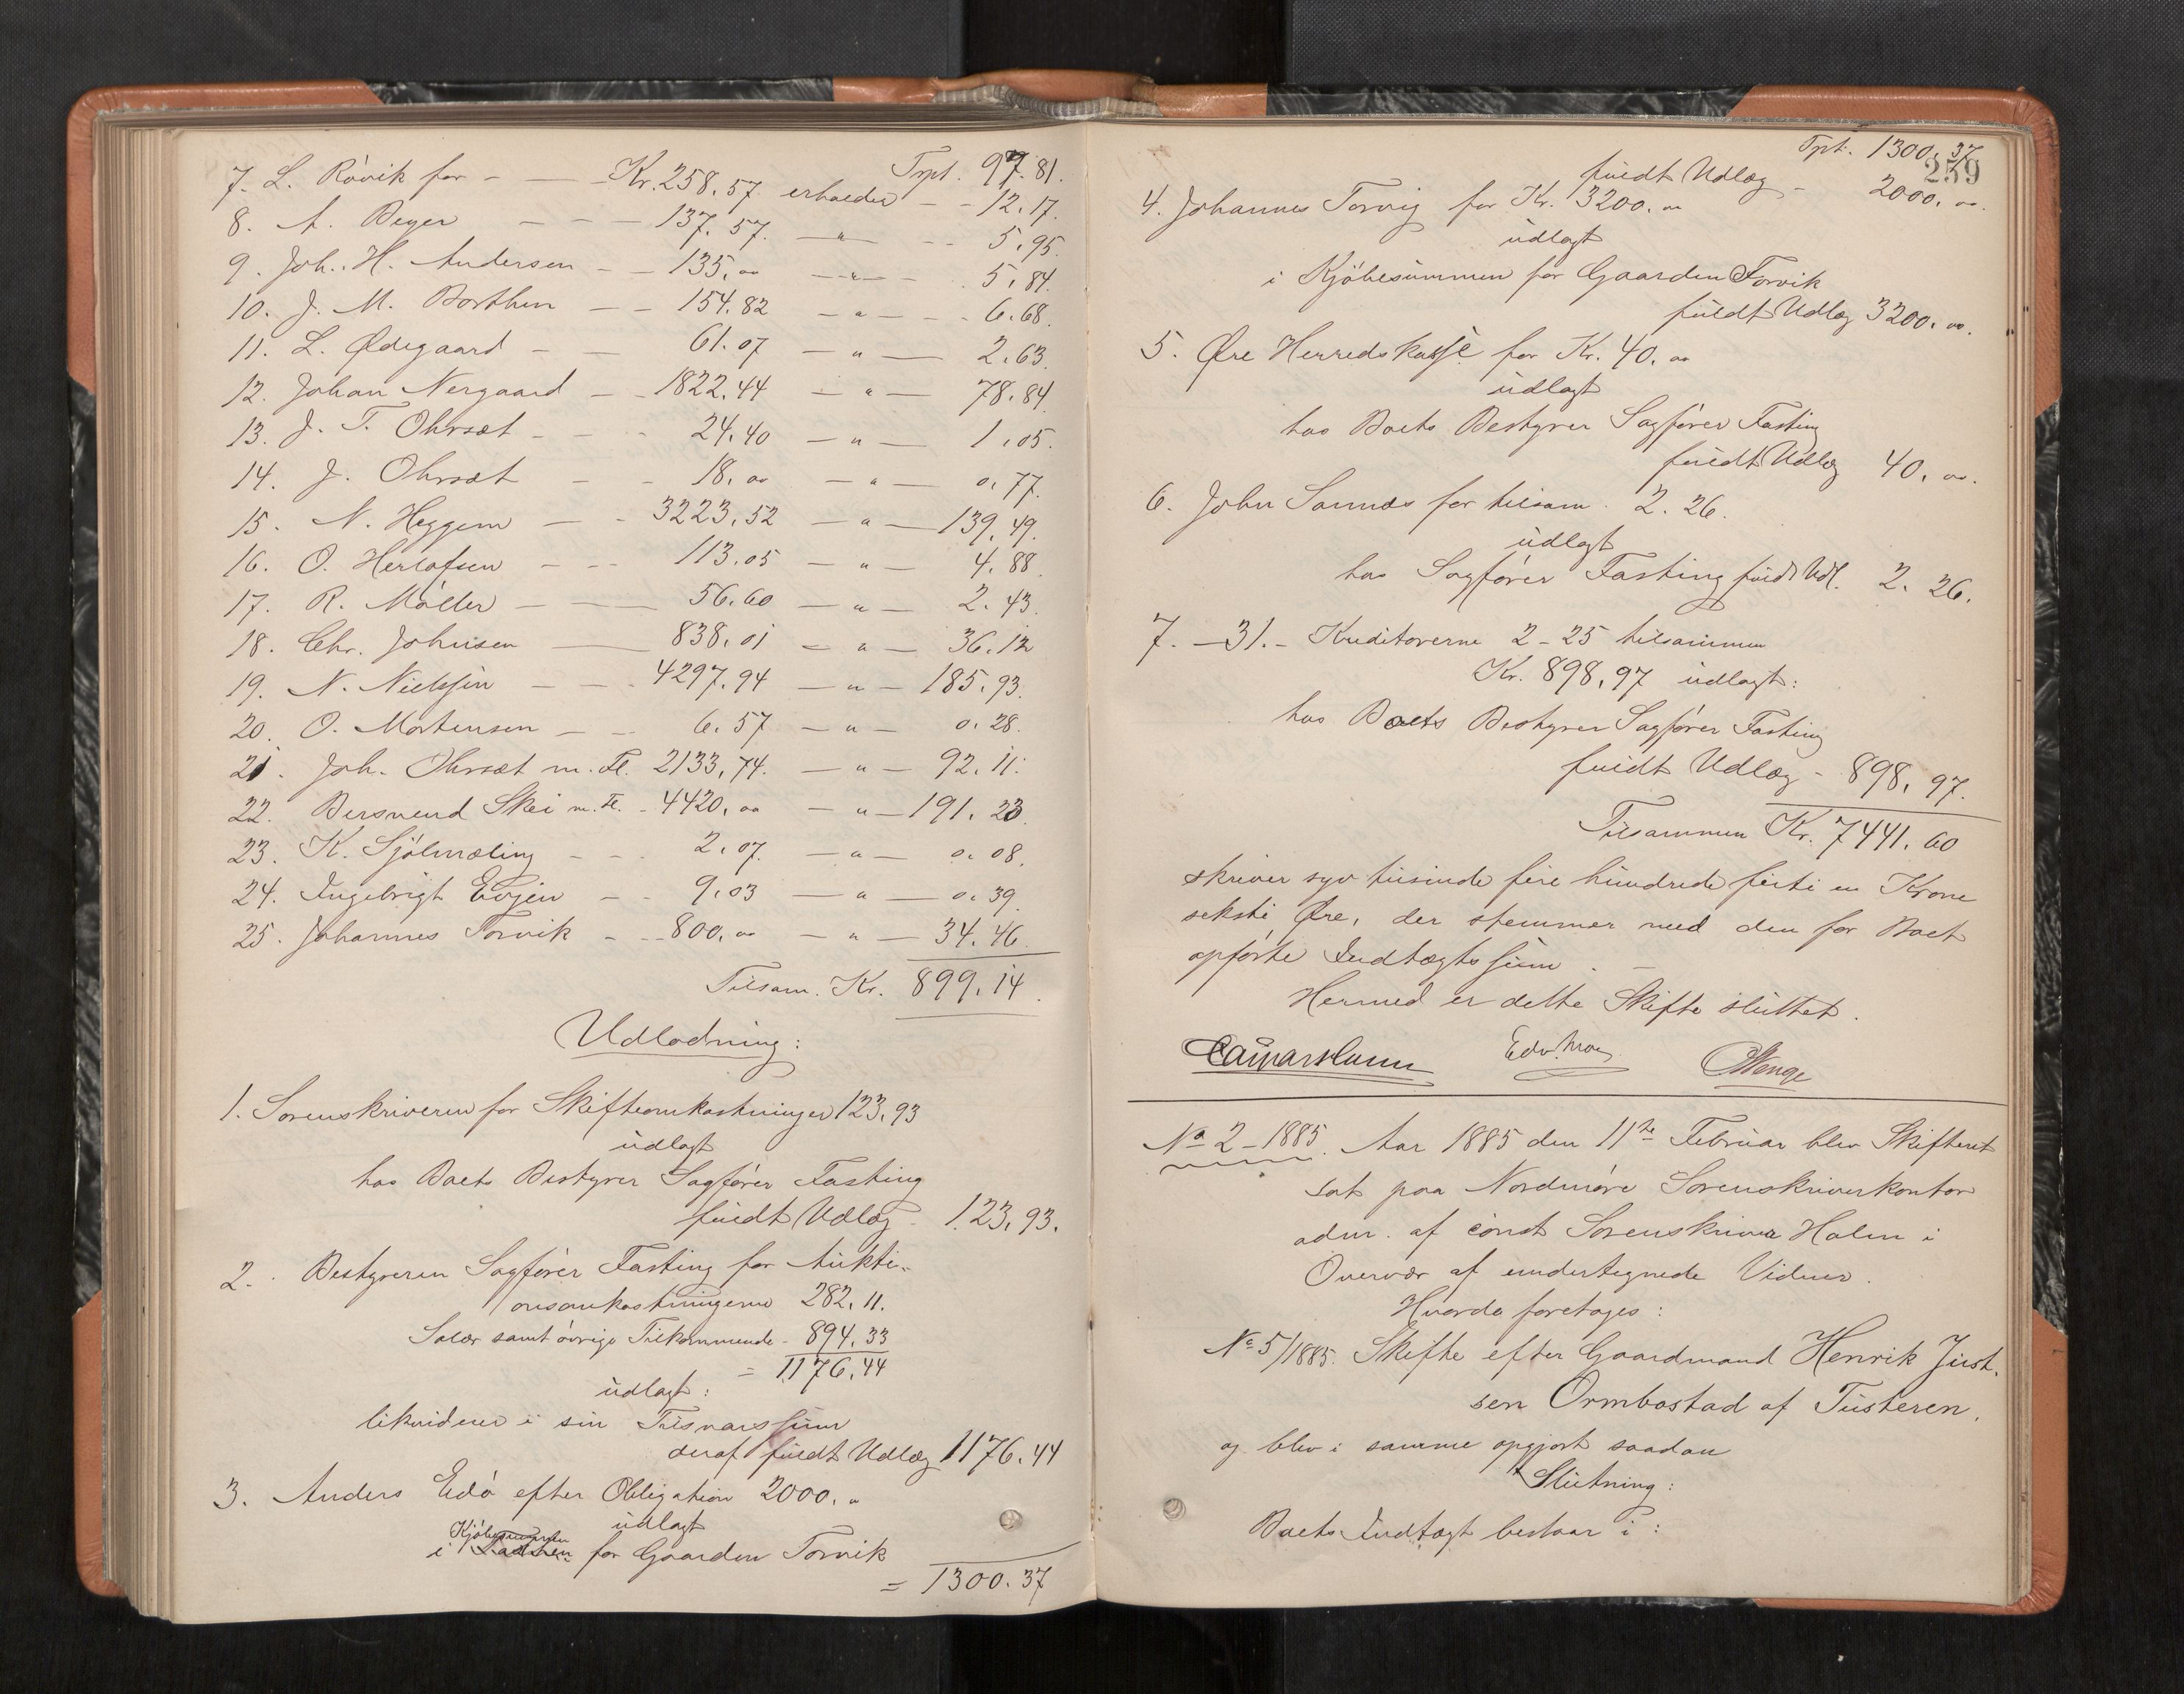 Trpt. 97.81.
7. L. Rövik for — — Kr. 258.57 erholder — - 12.17.
8. A. Beyer — — — 137.57. — " — - - 5.95.
9. Joh. H. Andersen — — 135. oo — " — - 5.84.
10. J. M. Borthen — — 154.82 — " — - - 6.68.
11. L. Ødegaard — — 61.07 — " — 2.63.
12. Johan Nergaard — — 1822.44 — " — 78.84.
13. J. T. Ohrsæt — - - 24.40 — " — 1.05.
14. J. Ohrsæt — - 18. oo — " — 0.77.
15. N. Heggem — - 3223.52 — " — 139.49.
16. O. Herlofsen — - - 113.05 — " — 4.88.
17. R. Möller — — 56.60 — " — 2.43.
18. Chr. Johnsen — 838.01 — " — 36.12
19. N. Nielssen — — - 4297.94 — " — 185.93.
20. O. Mortensen — — 6.57 — " — 0.28.
21. Joh. Ohrsæt m. Fl. 2133.74. — " — 92.11.
22. Bersvend Skei m. Fl. - 4420. oo — " — 191.23.
23. K. Sjölmæling - - - 2.07. — " — 0.08.
24. Ingebrigt Evjen — - 9.03 — " — 0.39.
25. Johannes Torvik - - - 800. oo — " — 34.46.
Tilsam. Kr. 899.14.
Udlodning:
1. Sorenskriveren for Skifteomkostninger 123.93
udlagt
hos Boets Bestyrer Sagfører Fasting
fuldt Udlæg - 123.93.
2. Bestyreren Sagfører Fasting for Aukti-
onsomkostningerne 282.11.
Salær samt övrige Tilkommende - 894.33
= 1176.44
udlagt:
likviderer i sin Tilsvarssum
deraf fuldt Udlæg 1176.44
3. Anders Edö efter Obligation 2000. "
udlagt
Kjøbesummen
i for Gaarden Torvik
= 1300.37
Trpt. 1300.37
259
fuldt Udlæg - 2000. oo.
4. Johannes Torvig for Kr. 3200. oo
udlagt
i Kjöbesummen for Gaarden Torvik
fuldt Udlæg 3200. oo.
5. Øre Herredskasse for Kr. 40. oo
udlagt
hos Boets Bestyrer Sagfører Fasting
fuldt Udlæg 40. oo.
6. John Sannæs for tilsam. 2.26.
udlagt
hos Sagfører Fasting fuldt Udl. 2.26.
7. — 31. - Kreditorerne 2 - 25 tilsammen
Kr. 898.97 udlagt:
hos Boets Bestyrer Sagfører Fasting
fuldt Udlæg - 898.97.
Tilsammen Kr. 7441.60
skriver syv tusinde fire hundrede firti en Krone
seksti Øre, der stemmer med den for Boet
opförte Indtægtssum. —
Hermed er dette Skifte sluttet.
Edv. Moe OWenge
No 2 - 1885. Aar 1885 den 11te Februar blev Skifteret
sat paa Nordmöre Sorenskriverkontor
adm. af const Sorenskriver Holm i
Overvær af undertegnede Vidner.
Hvorda foretages:
No 5/1885. Skifte efter Gaardmand Henrik Just-
sen Ormbostad af Tusteren,
og blev i samme opgjort saadan
Slutning:
Boets Indtægt bestaar i: